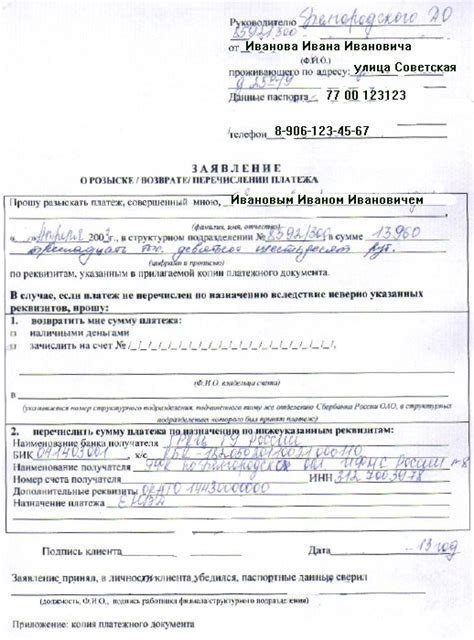 Руководителю Белгородского ДО
8592/300
от Иванова Ивана Ивановича
(Ф.И.О.)
проживающего по адресу: улица Советская
Данные паспорта 77 00 123123
телефон 8-906-123-45-67
ЗАЯВЛЕНИЕ
О РОЗЫСКЕ / ВОЗВРАТЕ/ ПЕРЕЧИСЛЕНИИ ПЛАТЕЖА
Прошу разыскать платеж, совершенный мною, Ивановым Иваном Ивановичем
(фамилия, имя, отчество)
апреля 200 г, в структурном подразделении № 8592/300 в сумме 13960
тринадцать тыс. девятьсот шестьдесят руб.
(цифрами и прописью)
по реквизитам, указанным в прилагаемой копии платежного документа.
В случае, если платеж не перечислен по назначению вследствие неверно указанных
реквизитов, прошу:
1. возвратить мне сумму платежа:
наличными деньгами
зачислить на счет №
(Ф.И.О. владельца счета)
в
(указывается номер структурного подразделения, подчиненного тому же отделению Сбербанка России ОАО, в структурных
подразделениях которого был принят платеж)
2. перечислить сумму платежа по назначению по нижеуказанным реквизитам:
Наименование банка получателя ГРКЦ ГУ России
БИК 041403001, к/с КБК
Наименование получателя УФК по Белгородской обл ИФНС России №8
Номер счета получателя ИНН
Дополнительные реквизиты ОКАТО
Назначение платежа ЕНВД
Подпись клиента Дата 13 год
Заявление принял, в личности клиента убедился, паспортные данные сверил
(должность, Ф.И.О., подпись работника филиала/структурного подразделения)
Приложение: копия платежного документа